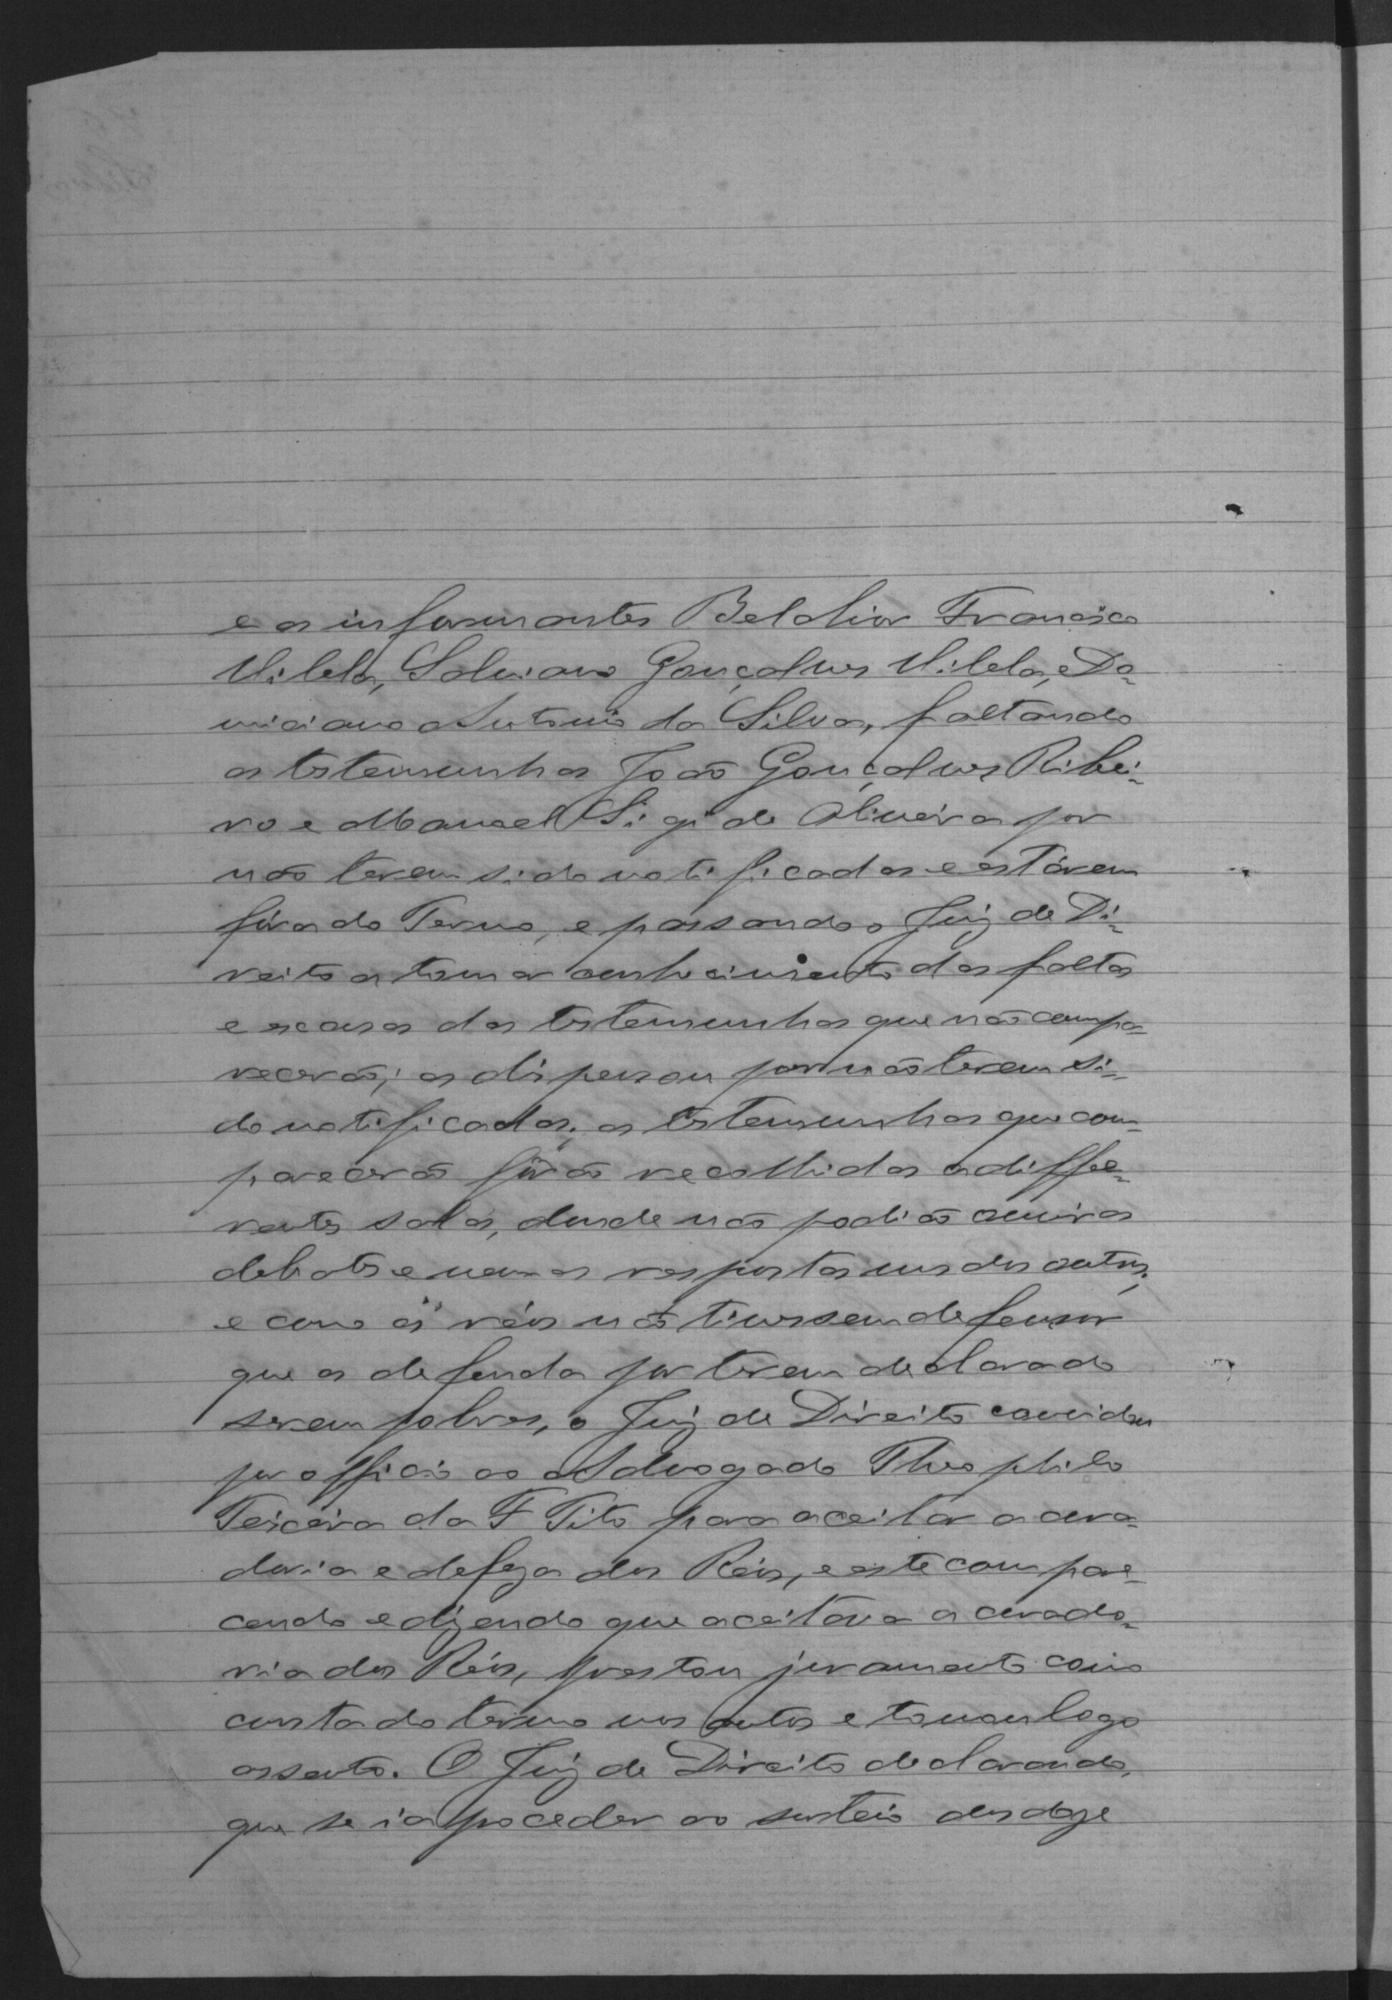 e os informantes Belchior Francisco
Vilela, Salviano Gonçalves Vilela, e Da=
miciano Antonio da Silva, faltando
as testemunhas João Gonçalves Ribei=
ro e Manoel de Oliveira por
não terem sido notificados e estárem
fóra do Termo, e passando o Juiz de Di=
reito a tomar conhecimento das faltas
e escusas das testemunhas que não compa=
recerão; as dispensou por não terem si=
do notificadas; as testemunhas que com=
parecerão fôrão recolhidas a diffe=
rentes salas, donde não podião ouvir os
debates e nem as respostas uns dos outros;
e como os réos não tivessem defensor
que os defenda por terem declarado
serem pobres, o Juiz de Direito convidou
por officio ao Advogado Theophilo
Teixeira da F Tito para aceitar a cura=
doria e defeza dos Réos, e este compare=
cendo e dizendo que aceitáva a curado=
ria dos Réos, prestou juramento como
consta do termo nos autos e tomou logo
assento. O Juiz de Direito declarando,
que se ia proceder ao sorteio dos doze